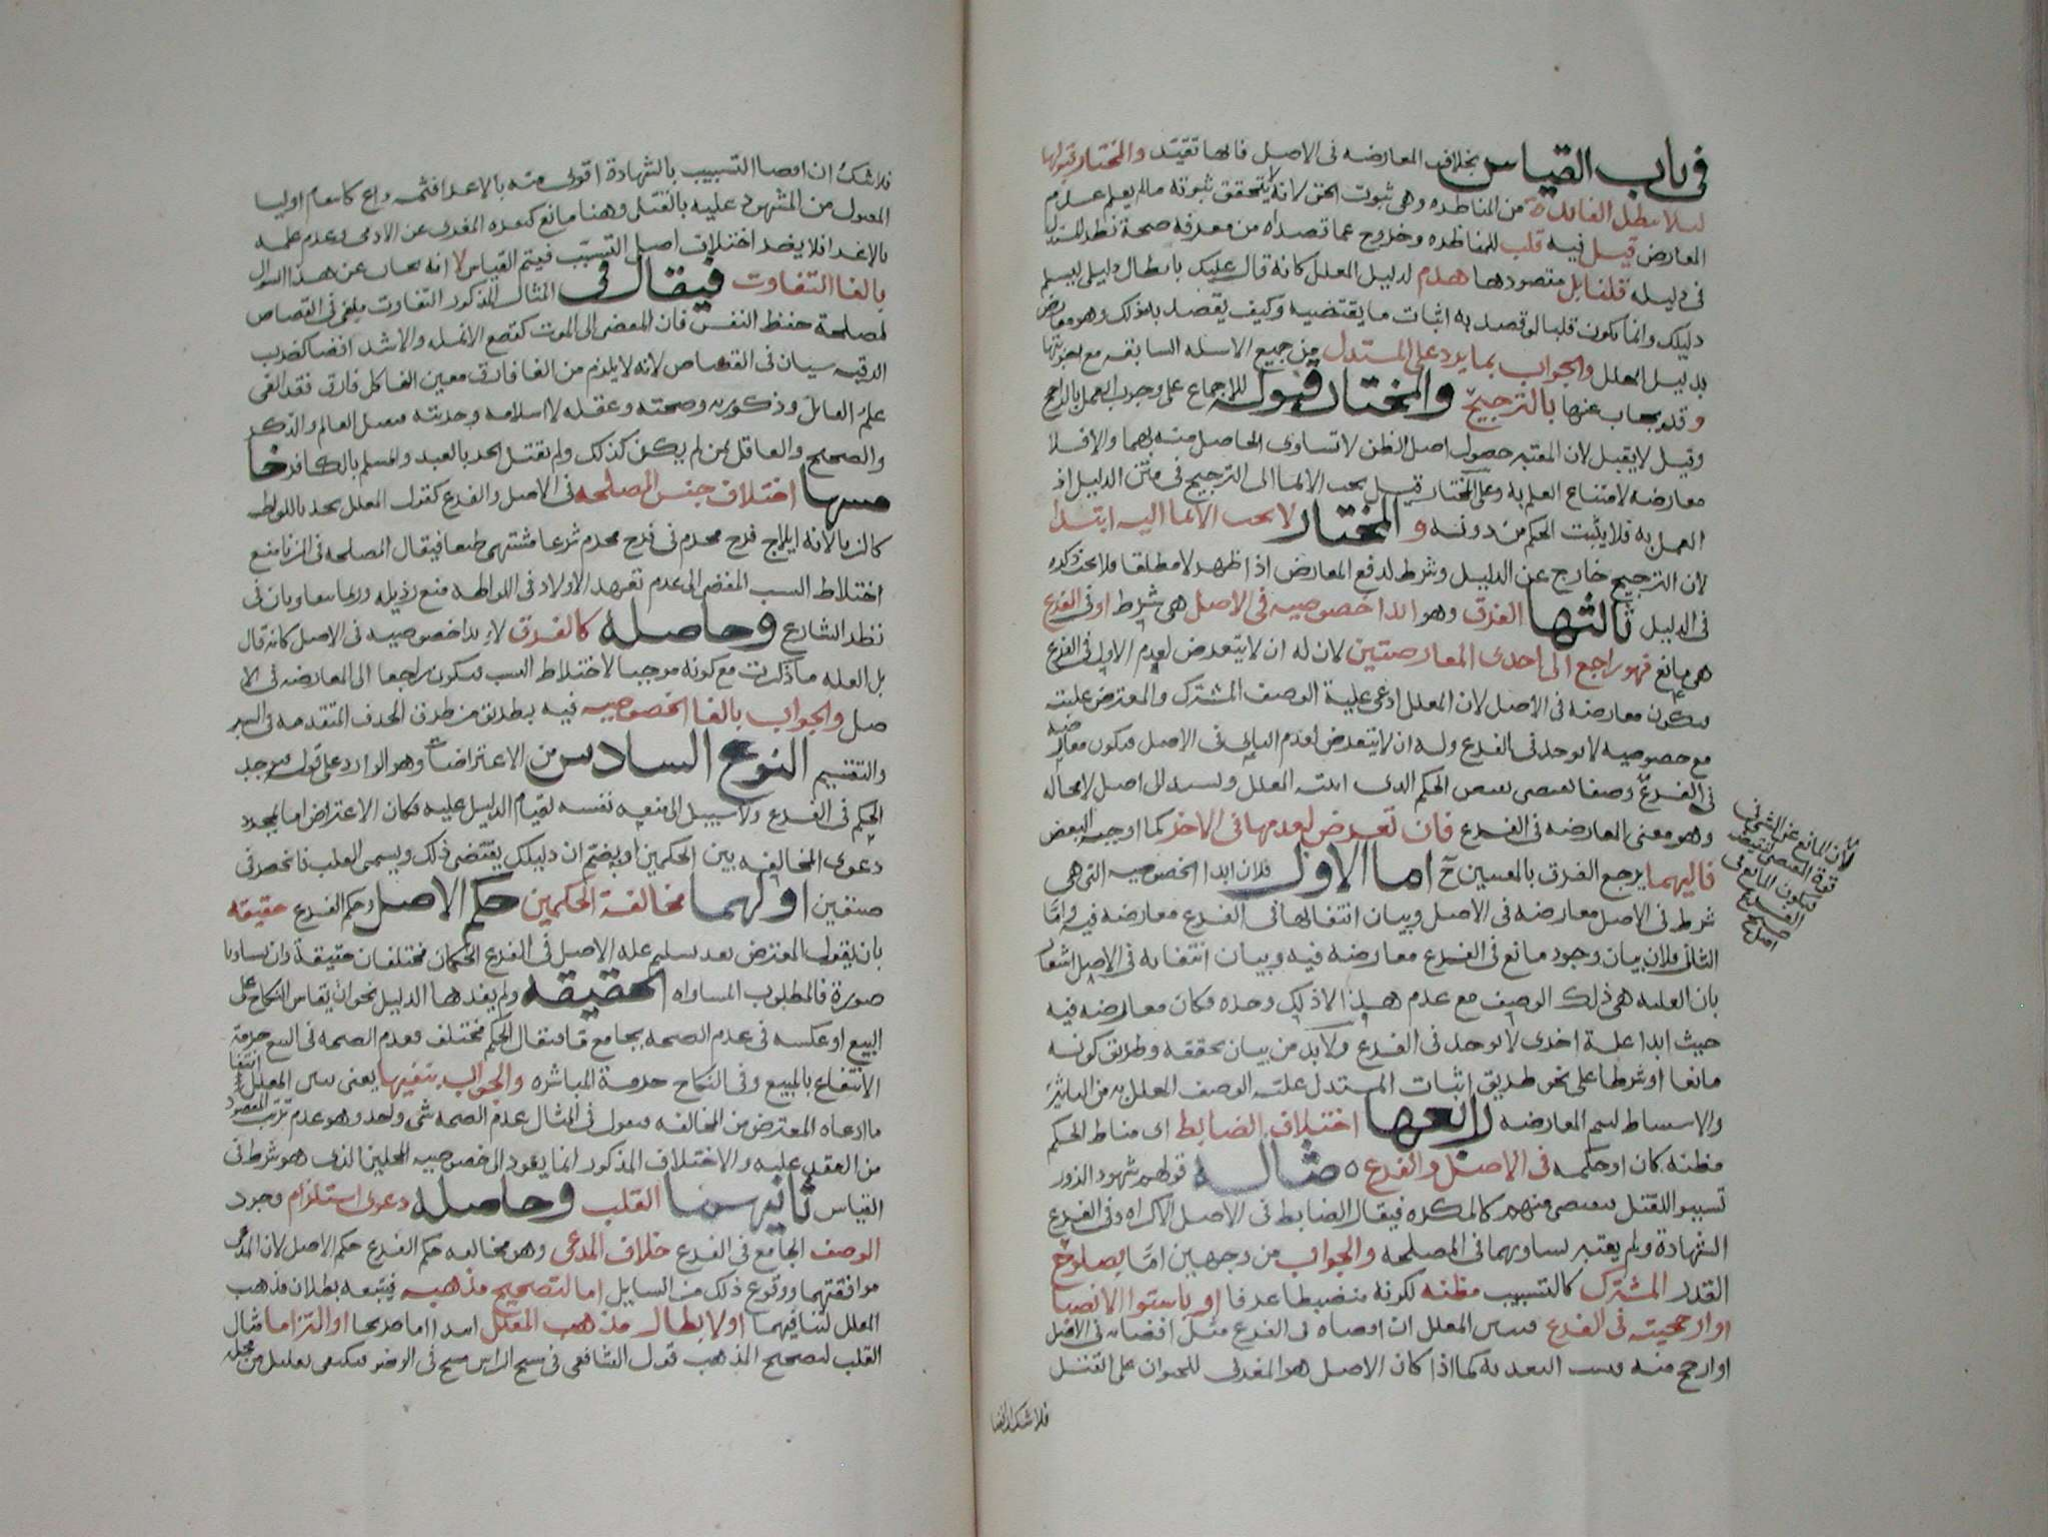 في باب القياس بخلاف المعارضه في الاصل فانها تقيّد والمختار قبولها
ليلا تبطل الفايدة من المناظره وهي ثبوت الحق لانه لا يتحقق ثبوته مالم يعلم عدم
المعارض قيل فيه قلب للمناظره وخروج عما قصداه من معرفة صحة نظر المستدل
في دليله قلنا بل مقصودها هدم لدليل المعلل كانه قال عليك بابطال دليلي ليسلم
دليلك وانما يكون قلبا لو قصد به اثبات ما يقتضيه وكيف يقصد به ذلك وهو معارض
بدليل المعلل والجواب بما يرد على المستدل من جميع الاسله السابقه مع اجوبتها
وقد يجاب عنها بالترجيح والمختار قبوله للاجماع على وجوب العمل بالراجح
وقيل لا يقبل لان المعتبر حصول اصل الظن لا تساوى الحاصل منه بهما والا فلا
معارضه لامتناع العلم به وعلى المختار قيل يجب الايما الى الترجيح في متن الدليل اذ
العمل به فلا يثبت الحكم من دونه والمختار لا يجب الايما اليه ابتدا
لان الترجيح خارج عن الدليل وشرط لدفع المعارض اذا ظهر لا مطلقا فلا يجب ذكره
في الدليل ثالثها الفرق وهو ابدا خصوصيه في الاصل هي شرط او في الفرع
هي مانع فهو راجع الى احدى المعارضتين لان له ان لا يتعرض لعدم الاول في الفرع
فيكون معارضه في الاصل لان المعلل ادعى علية الوصف المشترك والمعترض عليته
مع خصوصيه لا توجد في الفرع وله ان لا يتعرض لعدم الثاني في الاصل فيكون معارضه
في الفرع وصفا يقتضي نقيض الحكم الذي اثبته المعلل ويستند الى اصل لا محاله
وهو معنى المعارضه في الفرع فان تعرض لعدمها في الاخر كما اوجبه البعض
فاليهما يرجع الفرق بالمعنيين ح اما الاول فلان ابدا الخصوصيه التي هي
شرط في الاصل معارضه في الاصل وبيان انتفائها في الفرع معارضه فيه واما
الثاني فلان بيان وجود مانع في الفرع معارضه فيه وبيان انتفائه في الاصل اشعار
بان العله هي ذلك الوصف مع عدم هذا لا ذلك وحده فكان معارضه فيه
حيث ابدا علة اخرى لا توجد في الفرع ولا بد من بيان تحققه وطريق كونه
مانعا او شرطا على نحو طريق اثبات المستدل علته الوصف المعلل به من التاثير
والاستنباط ليتم المعارضه رابعها اختلاف الضابط اى مناط الحكم
مظنه كان او حكمه في الاصل والفرع ٥ مثاله قولهم شهود الزور
تسببوا للقتل فيقتص منهم كالمكره فيقال الضابط في الاصل الاكراه وفي الفرع
الشهادة ولم يعتبر تساويهما في المصلحه والجواب من وجهين امّا بصلوح
القدر المشترك كالتسبيب مظنه لكونه منضبطا عرفا او باستوا الافضا
او ارجحيته في الفرع فيبين المعلل ان افضاه في الفرع مثل افضائه في الاصل
او ارجح منه فيثبت التعديه كما اذا كان الاصل هو المغري للحيوان على القتل
لان المانع عن الشي في
قوة المقتضي لنقيضه
فيكون المانع في
الفرع
فلا شك ان افضا
فلا شك ان افضا التسبيب بالشهادة اقوى منه بالاعدا فثمه داع كانتقام اوليا
المقتول من المشهود عليه بالقتل وهنا مانع كبعده المغرى عن الادمى وعدم علمه
بالاغرا فلا يضر اختلاف اصل التسبّب فيتم القياس لا انه يجاب عن هذا السوال
بالغا التفاوت فيقال في المثال المذكور التفاوت ملغى في القصاص
لمصلحة حفظ النفس فان المفضى الى الموت كقطع الانمله والاشد افضا كضرب
الرقبه سيان في القصاص لانه لا يلزم من الغا فارق معين الغا كل فارق فقد الغى
علم القاتل وذكوريه وصحته وعقله لا اسلامه وحريته فيقتل العالم والذكر
والصحيح والعاقل بمن لم يكن كذلك ولم يقتل الحر بالعبد والمسلم بالكافر خا
مسها اختلاف جنس المصلحه في الاصل والفرع كقول المعلل يحد باللواطه
كالزنا لانه ايلاج فرج محرم في فرج محرم شرعا مشتهى طبعا فيقال المصلحه في الزنا منع
اختلاط النسب المفضى الى عدم تعهد الاولاد في اللواطه منع رذيله وربما يتفاوتان في
نظر الشارع وحاصله كالفرق لابدا خصوصيه في الاصل كانه قال
بل العله ما ذكرت مع كونه موجبا لاختلاط النسب فيكون راجعا الى المعارضه في الا
صل والجواب بالغا الخصوصيه فيه بطريق من طرق الحذف المتقدمه في السبر
والتقسيم النوع السادس من الاعتراضات وهو الوارد على قوله فيوجد
الحكم في الفرع ولا سبيل الى منعه نفسه لقيام الدليل عليه فكان الاعتراض اما بمجرد
دعوى المخالفه بين الحكمين او بضم ان دليلك يقتضي ذلك ويسمى القلب فانحصر في
صنفين اولهما مخالفة الحكمين حكم الاصل وحكم الفرع حقيقه
بان يقول المعترض بعد تسليم عله الاصل في الفرع الحكمان مختلفان حقيقة وان تساويا
صورة فالمطلوب المساواه الحقيقه ولم يفدها الدليل نحو ان يقاس النكاح على
البيع او عكسه في عدم الصحه بجامع قا فيقال الحكم مختلف فعدم الصحه في البيع حرمة
الانتفاع بالمبيع وفي النكاح حرمة المباشره والجواب بنفيها يعنى يبين المعلل انتفا
ما ادعاه المعترض من المخالفه فيقول في المثال عدم الصحه شي واحد وهو عدم ترتب المقصود
من العقد عليه والاختلاف المذكور انما يعود الى خصوصيه المحلين الذى هو شرط في
القياس ثانيهما القلب وحاصله دعوى استلزام وجود
الوصف الجامع في الفرع خلاف المدعى وهو مخالفه حكم الفرع حكم الاصل لان المدعى
موافقتهما ووقوع ذلك من السايل اما لتصحيح مذهبه فيتبعه بطلان مذهب
المعلل لتنافيهما او لابطال مذهب المعلل ابتدا اما صريحا او التزاما مثال
القلب لتصحيح المذهب قول الشافعي في مسح الراس مسح في الوضو فيكفى